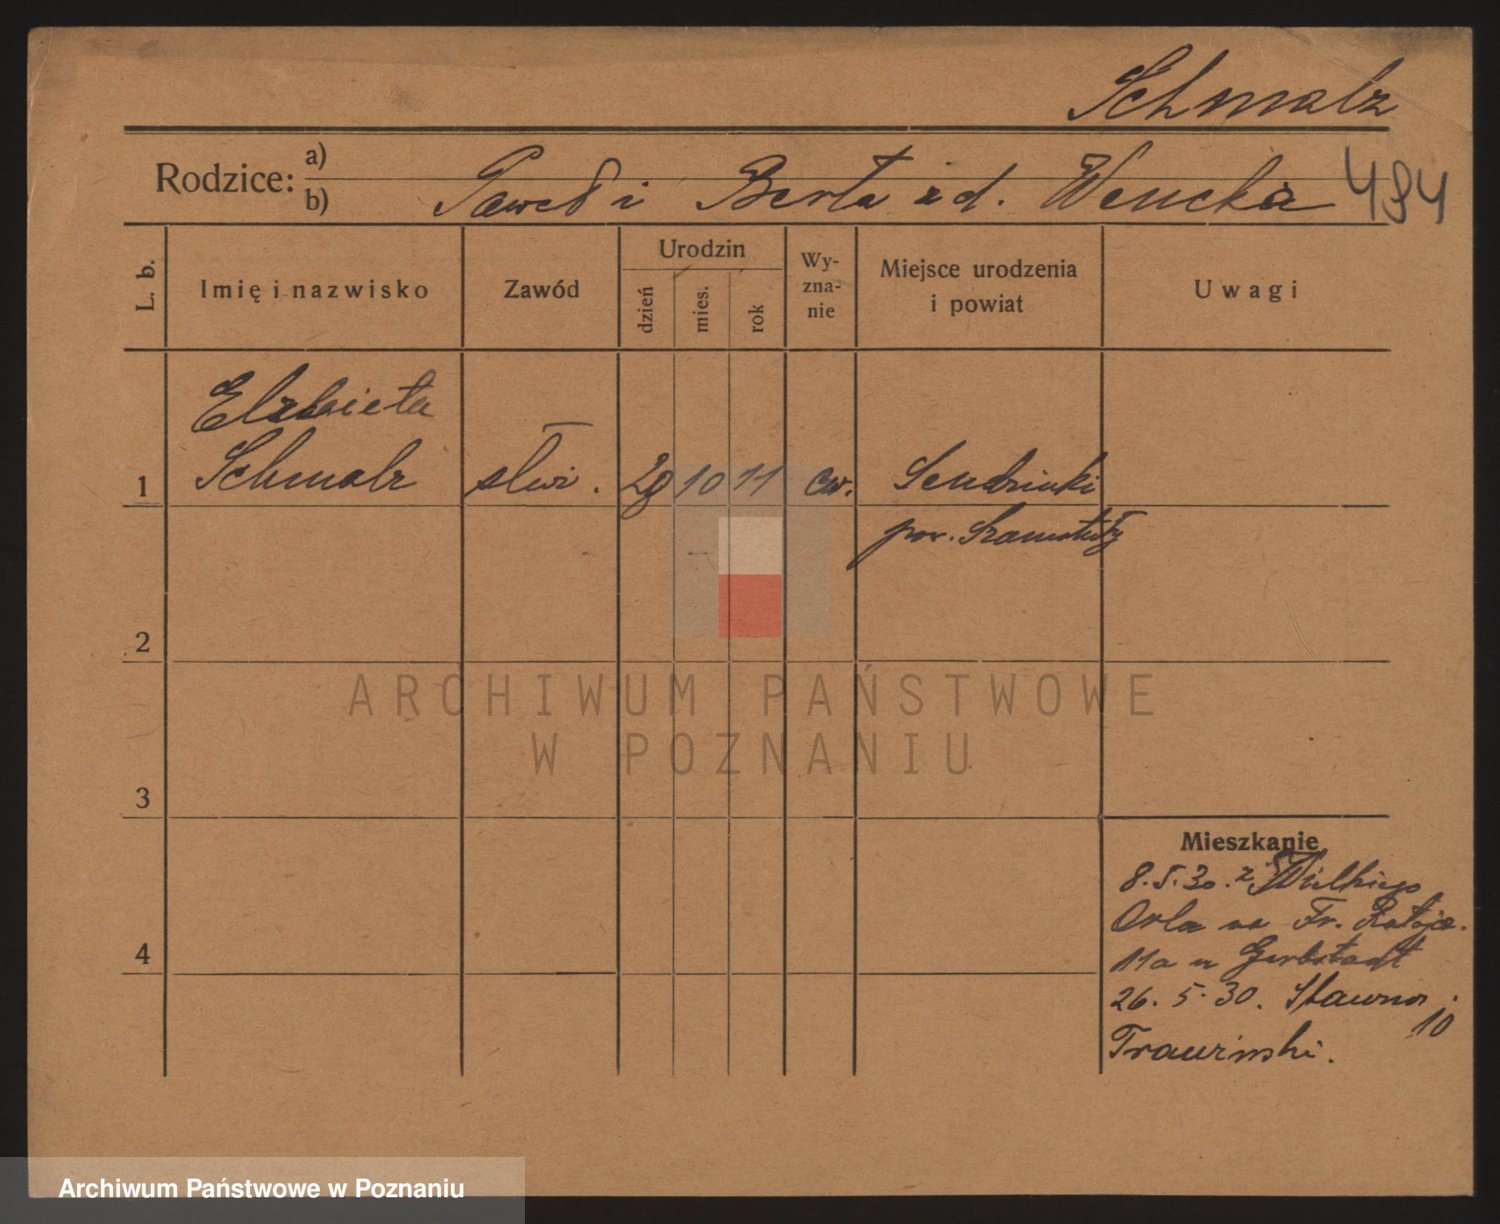 Schmalz
Rodzice: a)
b) Paweł i Berta z d. Wencka 494
L. b. Imię i nazwisko Zawód Urodzin dzień mies. rok Wyznanie Miejsce urodzenia i powiat Uwagi
Elzbieta
1 Schmalz służ. 29 10 11 ew. Sendzinki
pow. Szamotuły
2
ARCHIWUM PAŃSTWOWE
W POZNANIU
3
Mieszkanie
8.5.30. z Wielkiego
Orla na Fr. Ratajcz.
4 11a u Gerbstadt
26.5.30. Sławna 10
Trawinski.
Archiwum Państwowe w Poznaniu